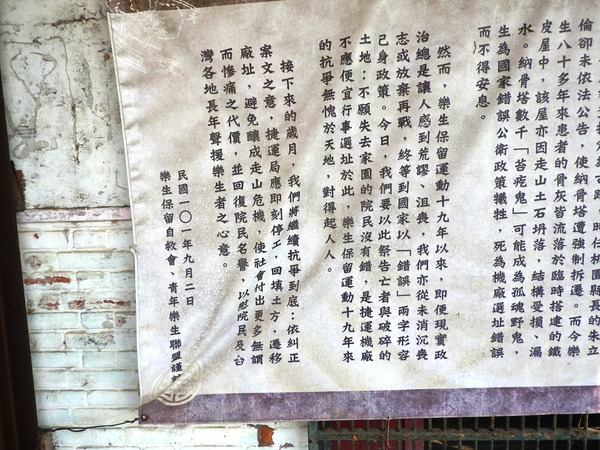 時任桃園縣長的朱立
倫卻未依法公告，使納骨塔遭強制拆遷。而今樂
生八十多年來患者的骨灰皆流落於臨時搭建的鐵
皮屋中，該屋亦因走山土石坍落，結構受損、漏
水。納骨塔數千「苔疙鬼」可能成為孤魂野鬼，
生為國家錯誤公衛政策犧牲，死為機廠選址錯誤
而不得安息。
然而，樂生保留運動十九年以來，即便現實政
治總是讓人感到荒謬、沮喪，我們亦從未消沉喪
志或放棄再戰，終等到國家以「錯誤」兩字形容
己身政策。今日，我們要以此祭告亡者與破碎的
土地：不願失去家園的院民沒有錯，是捷運機廠
不應便宜行事選址於此，樂生保留運動十九年來
的抗爭無愧於天地，對得起人人。
接下來的歲月，我們將繼續抗爭到底：依糾正
案文之意，捷運局應即刻停工，回填土方，遷移
廠址，避免釀成走山危機，使社會付出更多無謂
而慘痛之代價，並回復院民名譽，以慰院民及台
灣各地長年聲援樂生者之心意。
民國一〇一年九月二日
樂生保留自救會、青年樂生聯盟謹